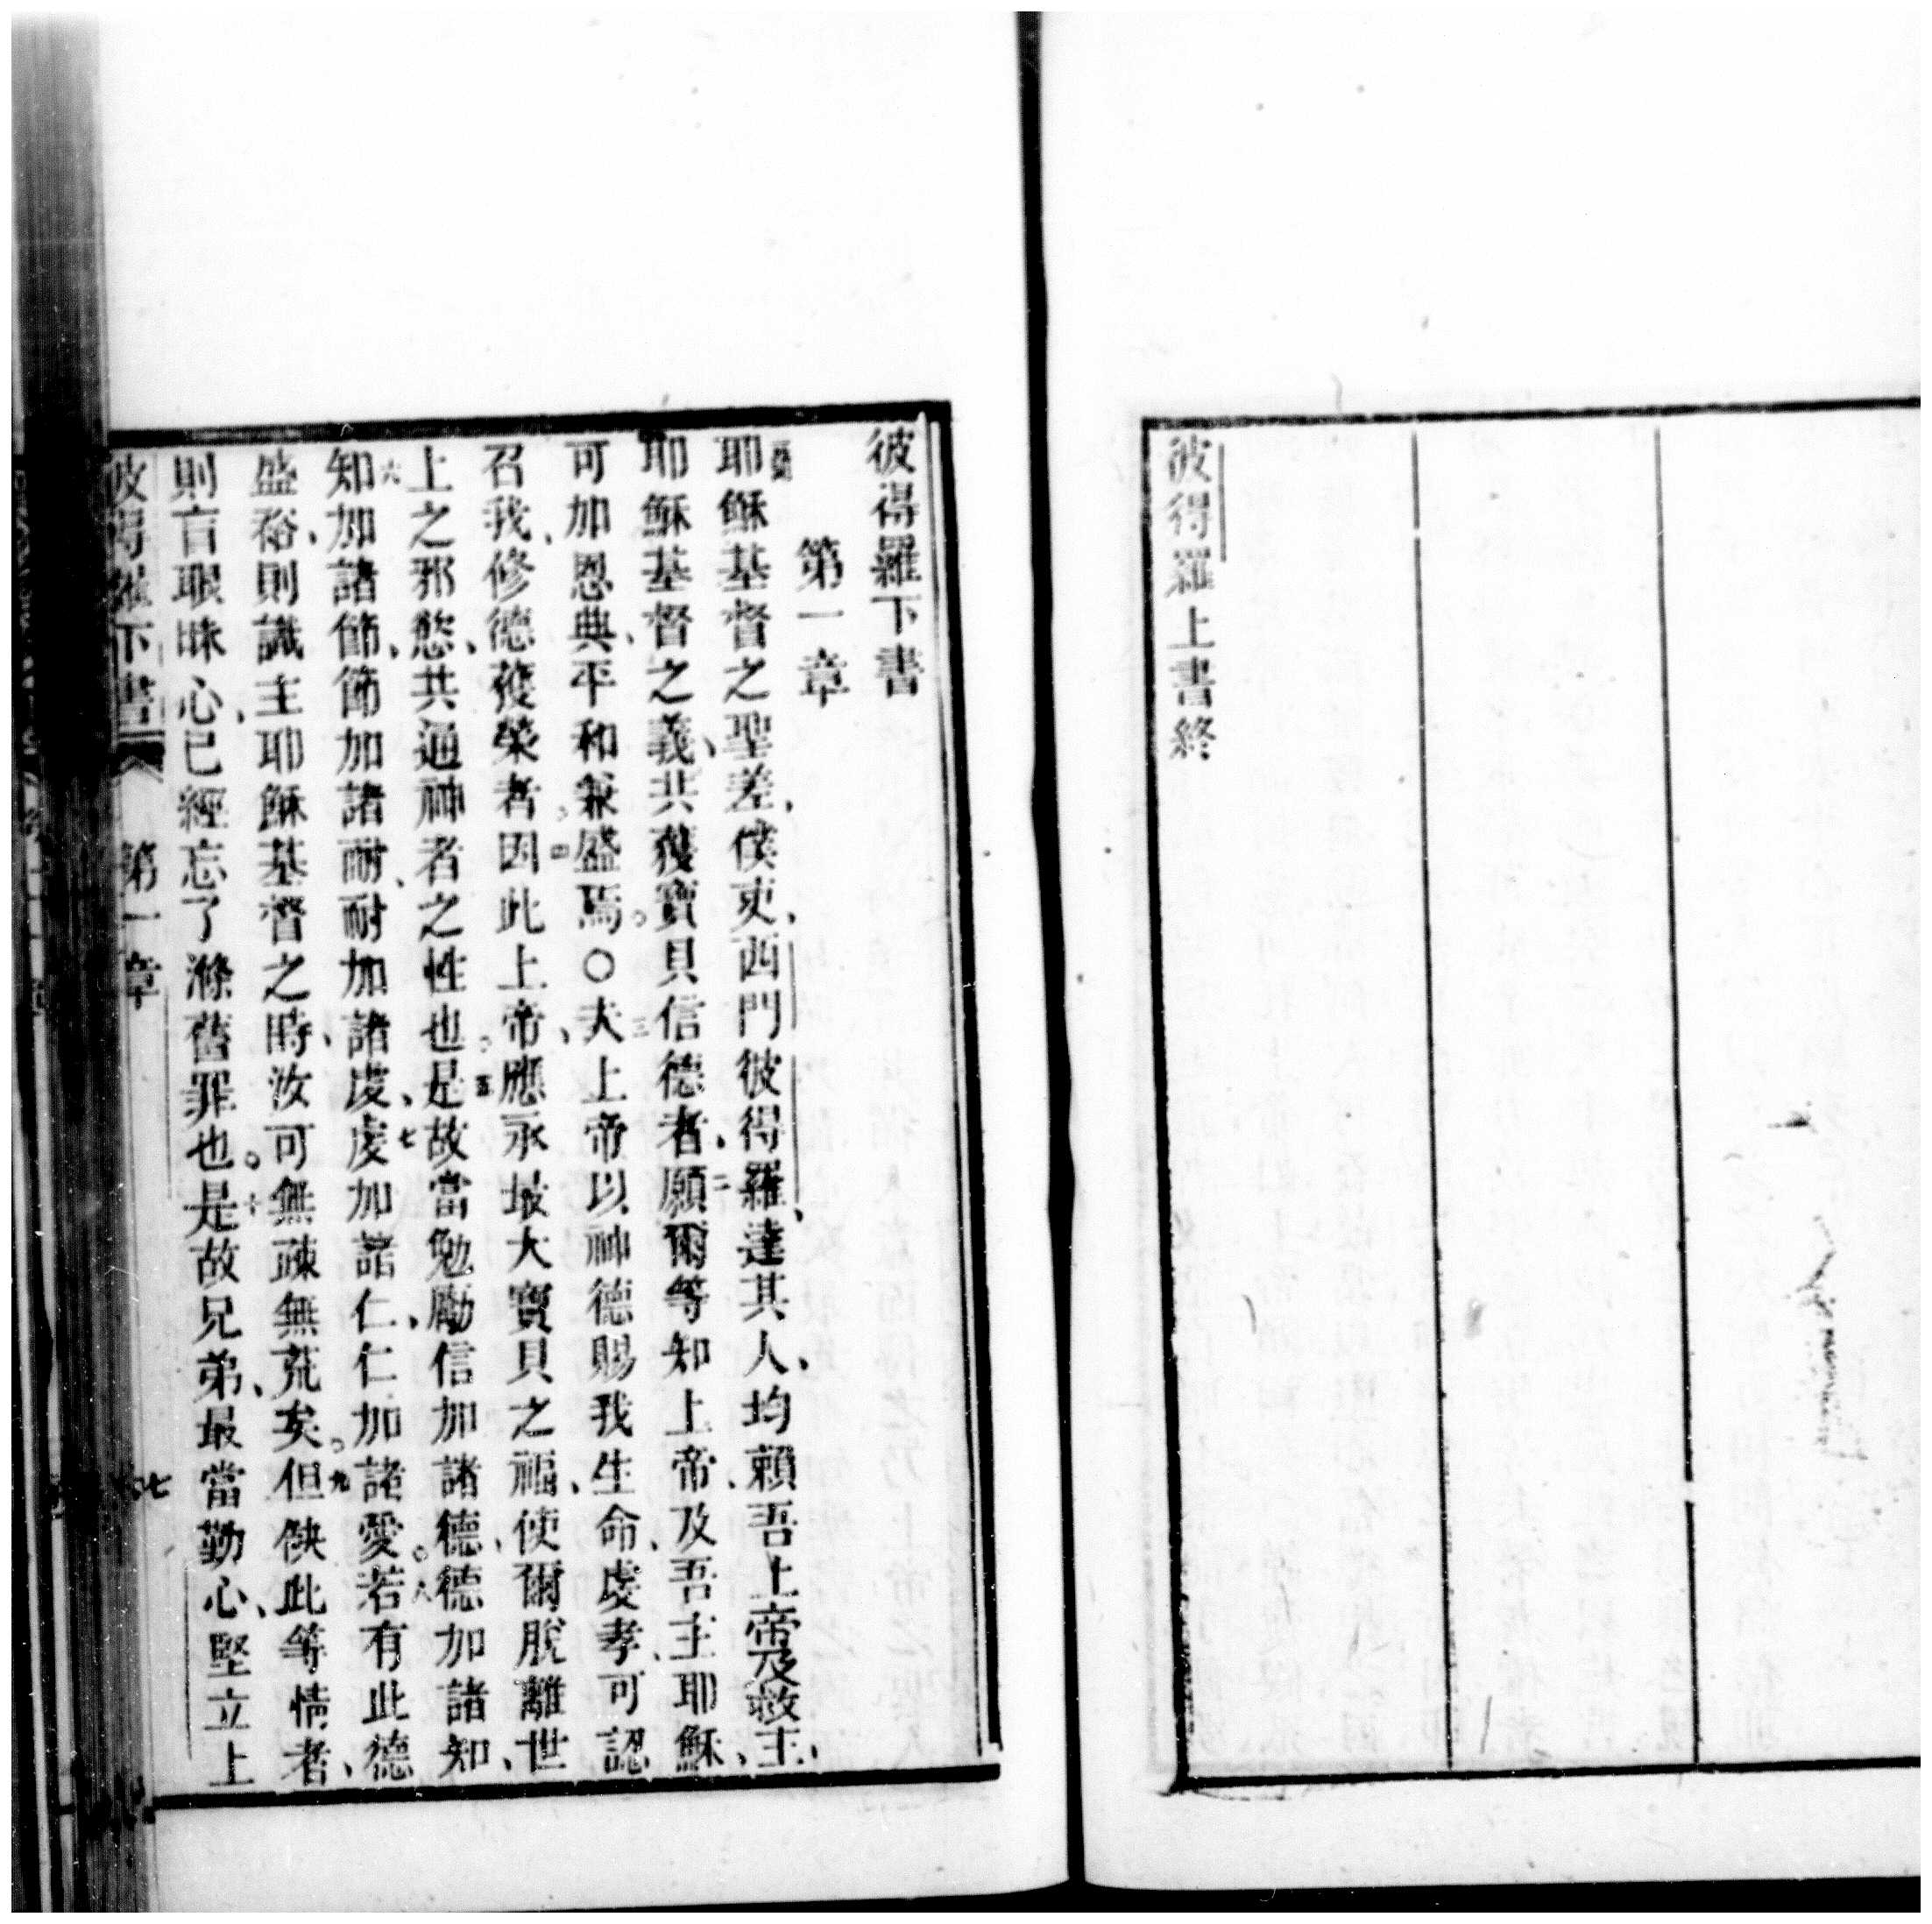 彼得羅上書終
彼得羅下書
第一章
耶穌基督之聖差、僕吏、西門彼得羅、達其人、均賴吾上帝及救主、
耶穌基督之義、共獲寶貝信德者、二願爾等知上帝、及吾主耶穌、
可加恩典、平和兼盛焉。〇三夫上帝以神德賜我生命、虔孝、可認
召我、修德獲榮者。四因此上帝、應承最大寶貝之福、使爾脫離世
上之邪慾、共通神者之性也。五是故當勉勵信加諸德、德加諸知、
六知加諸節、節加諸耐、耐加諸虔、七虔加諸仁、仁加諸愛。八若有此德
盛裕、則識主耶穌基督之時、汝可無疎無荒矣。九但缺此等情者、
則盲眼昧心、已經忘了滌舊罪也。十是故兄弟、最當勤心、堅立上
彼得羅下書 第一章 七